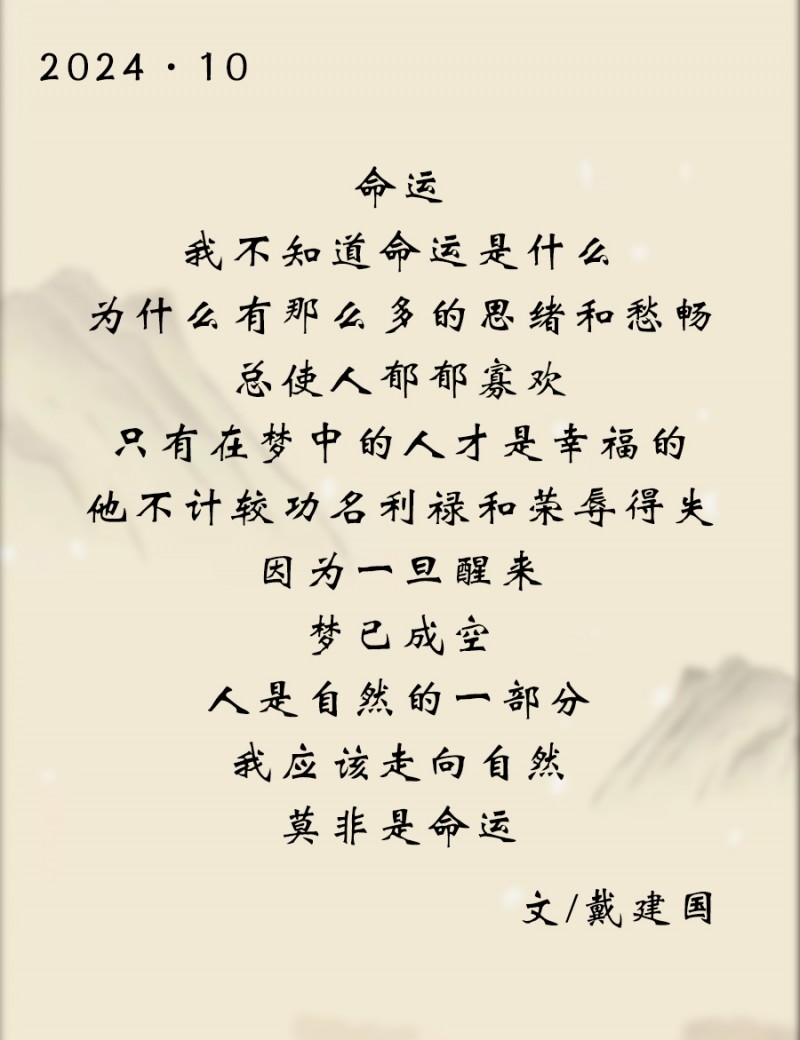 2024・10
命运
我不知道命运是什么
为什么有那么多的思绪和愁畅
总使人郁郁寡欢
只有在梦中的人才是幸福的
他不计较功名利禄和荣辱得失
因为一旦醒来
梦已成空
人是自然的一部分
我应该走向自然
莫非是命运
文/戴建国